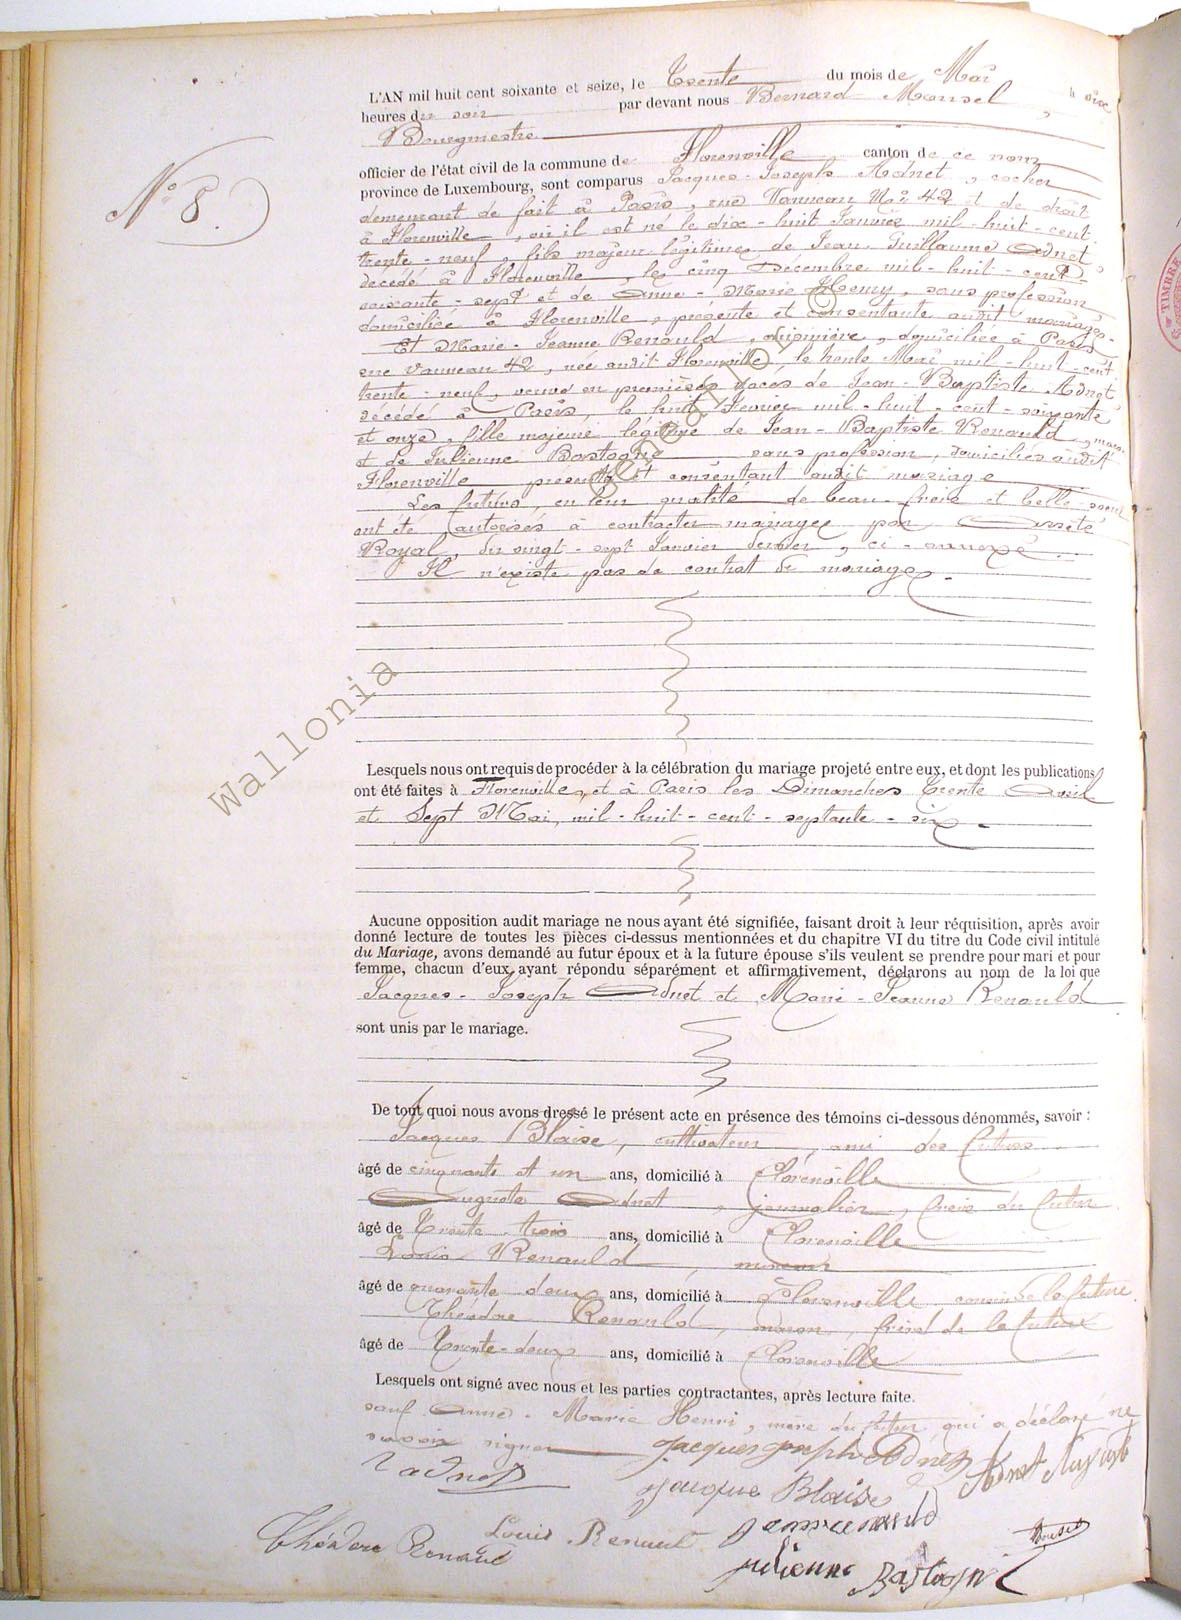 L'AN mil huit cent soixante et seize, le Trente du mois de Mai à six
heures du soir par devant nous Bernard Mansel,
Bourgmestre
officier de l'état civil de la commune de Florenville canton de ce nom
province de Luxembourg, sont comparus Jacques-Joseph Adnet, cocher
demeurant de fait à Paris, rue Vanneau No 42 et de droit
à Florenville, où il est né le dix-huit Janvier mil-huit-cent
trente-neuf, fils majeur légitime de Jean Guillaume Adnet
décédé à Florenville, le cinq Décembre mil-huit-cent
soixante-sept et de Anne-Marie Henry, sans profession
domiciliée à Florenville, présente et consentante audit mariage.
Et Marie-Jeanne Renauld, cuisinière, domiciliée à Paris
rue Vanneau 42, née audit Florenville, le trente Mai mil-huit-cent
trente-neuf, veuve en premières noces de Jean-Baptiste Adnet
décédé à Paris, le huit Février mil-huit-cent-soixante
et onze, fille majeure légitime de Jean-Baptiste Renauld, maçon
et de Julienne Bastogne, sans profession, domiciliés audit
Florenville présents et consentant audit mariage
Les futurs, en leur qualité de beau-frère et belle-sœur
ont été autorisés à contracter mariage par Arrêté
Royal, du vingt-sept Janvier dernier, ci-annexé.
Il n'existe pas de contrat de mariage.
No 8.
TIMBRE
Wallonia
Genealogy
©
Lesquels nous ont requis de procéder à la célébration du mariage projeté entre eux, et dont les publications
ont été faites à Florenville, et à Paris les Dimanches Trente Avril
et Sept Mai, mil-huit-cent-septante-six.
Aucune opposition audit mariage ne nous ayant été signifiée, faisant droit à leur réquisition, après avoir
donné lecture de toutes les pièces ci-dessus mentionnées et du chapitre VI du titre du Code civil intitulé
du Mariage, avons demandé au futur époux et à la future épouse s'ils veulent se prendre pour mari et pour
femme, chacun d'eux ayant répondu séparément et affirmativement, déclarons au nom de la loi que
Jacques-Joseph Adnet et Marie-Jeanne Renauld
sont unis par le mariage.
De tout quoi nous avons dressé le présent acte en présence des témoins ci-dessous dénommés, savoir :
Jacques Blaise, cultivateur, ami des futurs
âgé de cinquante et un ans, domicilié à Florenville
Auguste Adnet, journalier, frère du futur
âgé de Trente-trois ans, domicilié à Florenville
Louis Renauld,
âgé de quarante deux ans, domicilié à Florenville cousin de la future.
Théodore Renauld, maçon, frère de la future
âgé de Trente-deux ans, domicilié à Florenville
Lesquels ont signé avec nous et les parties contractantes, après lecture faite.
sauf Anne-Marie Henri, mère du futur qui a déclaré ne
savoir signer
Jacques joseph Adnet
Jacque Blaise
Théodore Renauld
Louis Renault
julienne Bastogne